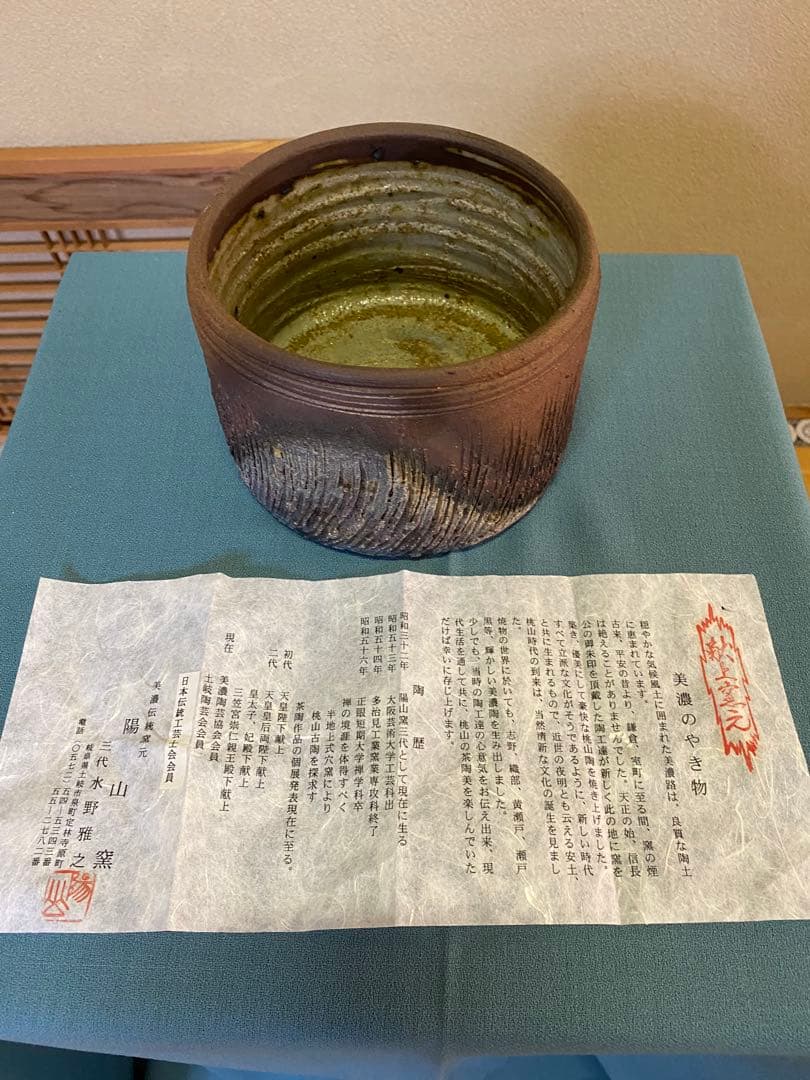 献上窯元
美濃のやき物
穏やかな気候風土に囲まれた美濃路は、良質な陶土
に恵まれています。
古来、平安の昔より 鎌倉、室町に至る間、窯の煙
は絶えることがありませんでした。天正の始、信長
公の御朱印を頂戴した陶工達が新しく此の地に窯を
築き、優美にして豪快な桃山陶を焼き上げました。
すべて立派な文化がそうであるように、新しい時代
と共に生まれるもので、近世の夜明とも云える安土、
桃山時代の到来は、当然清新な文化の誕生を見まし
た。
焼物の世界に於いても、志野、織部、黄瀬戸、瀬戸
黒等、輝かしい美濃陶を生み出しました。
少しでも、当時の陶工達の心意気をお伝え出来、現
代生活を通して共に、桃山の茶陶美を楽しんでいた
だけば幸いに存じ上げます。
陶歴
昭和三十二年 陽山窯三代として現在に生る
昭和五十三年 大阪芸術大学工芸科出
昭和五十四年 多治見工業窯業専攻科終了
昭和五十六年 正眼短期大学禅学科卒
禅の境涯を体得すべく
半地上式穴窯により
桃山古陶を探求す
茶陶作品の個展発表現在に至る。
初代 天皇陛下献上
二代 天皇皇后両陛下献上
皇太子、妃殿下献上
三笠宮崇仁親王殿下献上
現在 美濃陶芸協会会員
土岐陶芸会会員
日本伝統工芸士会会員
美濃伝統窯元
陽山窯
三代 水野雅之
岐阜県土岐市泉町定林寺原町
電話〇五七二-五四-五三四三番
五五-二七八二番
陽山